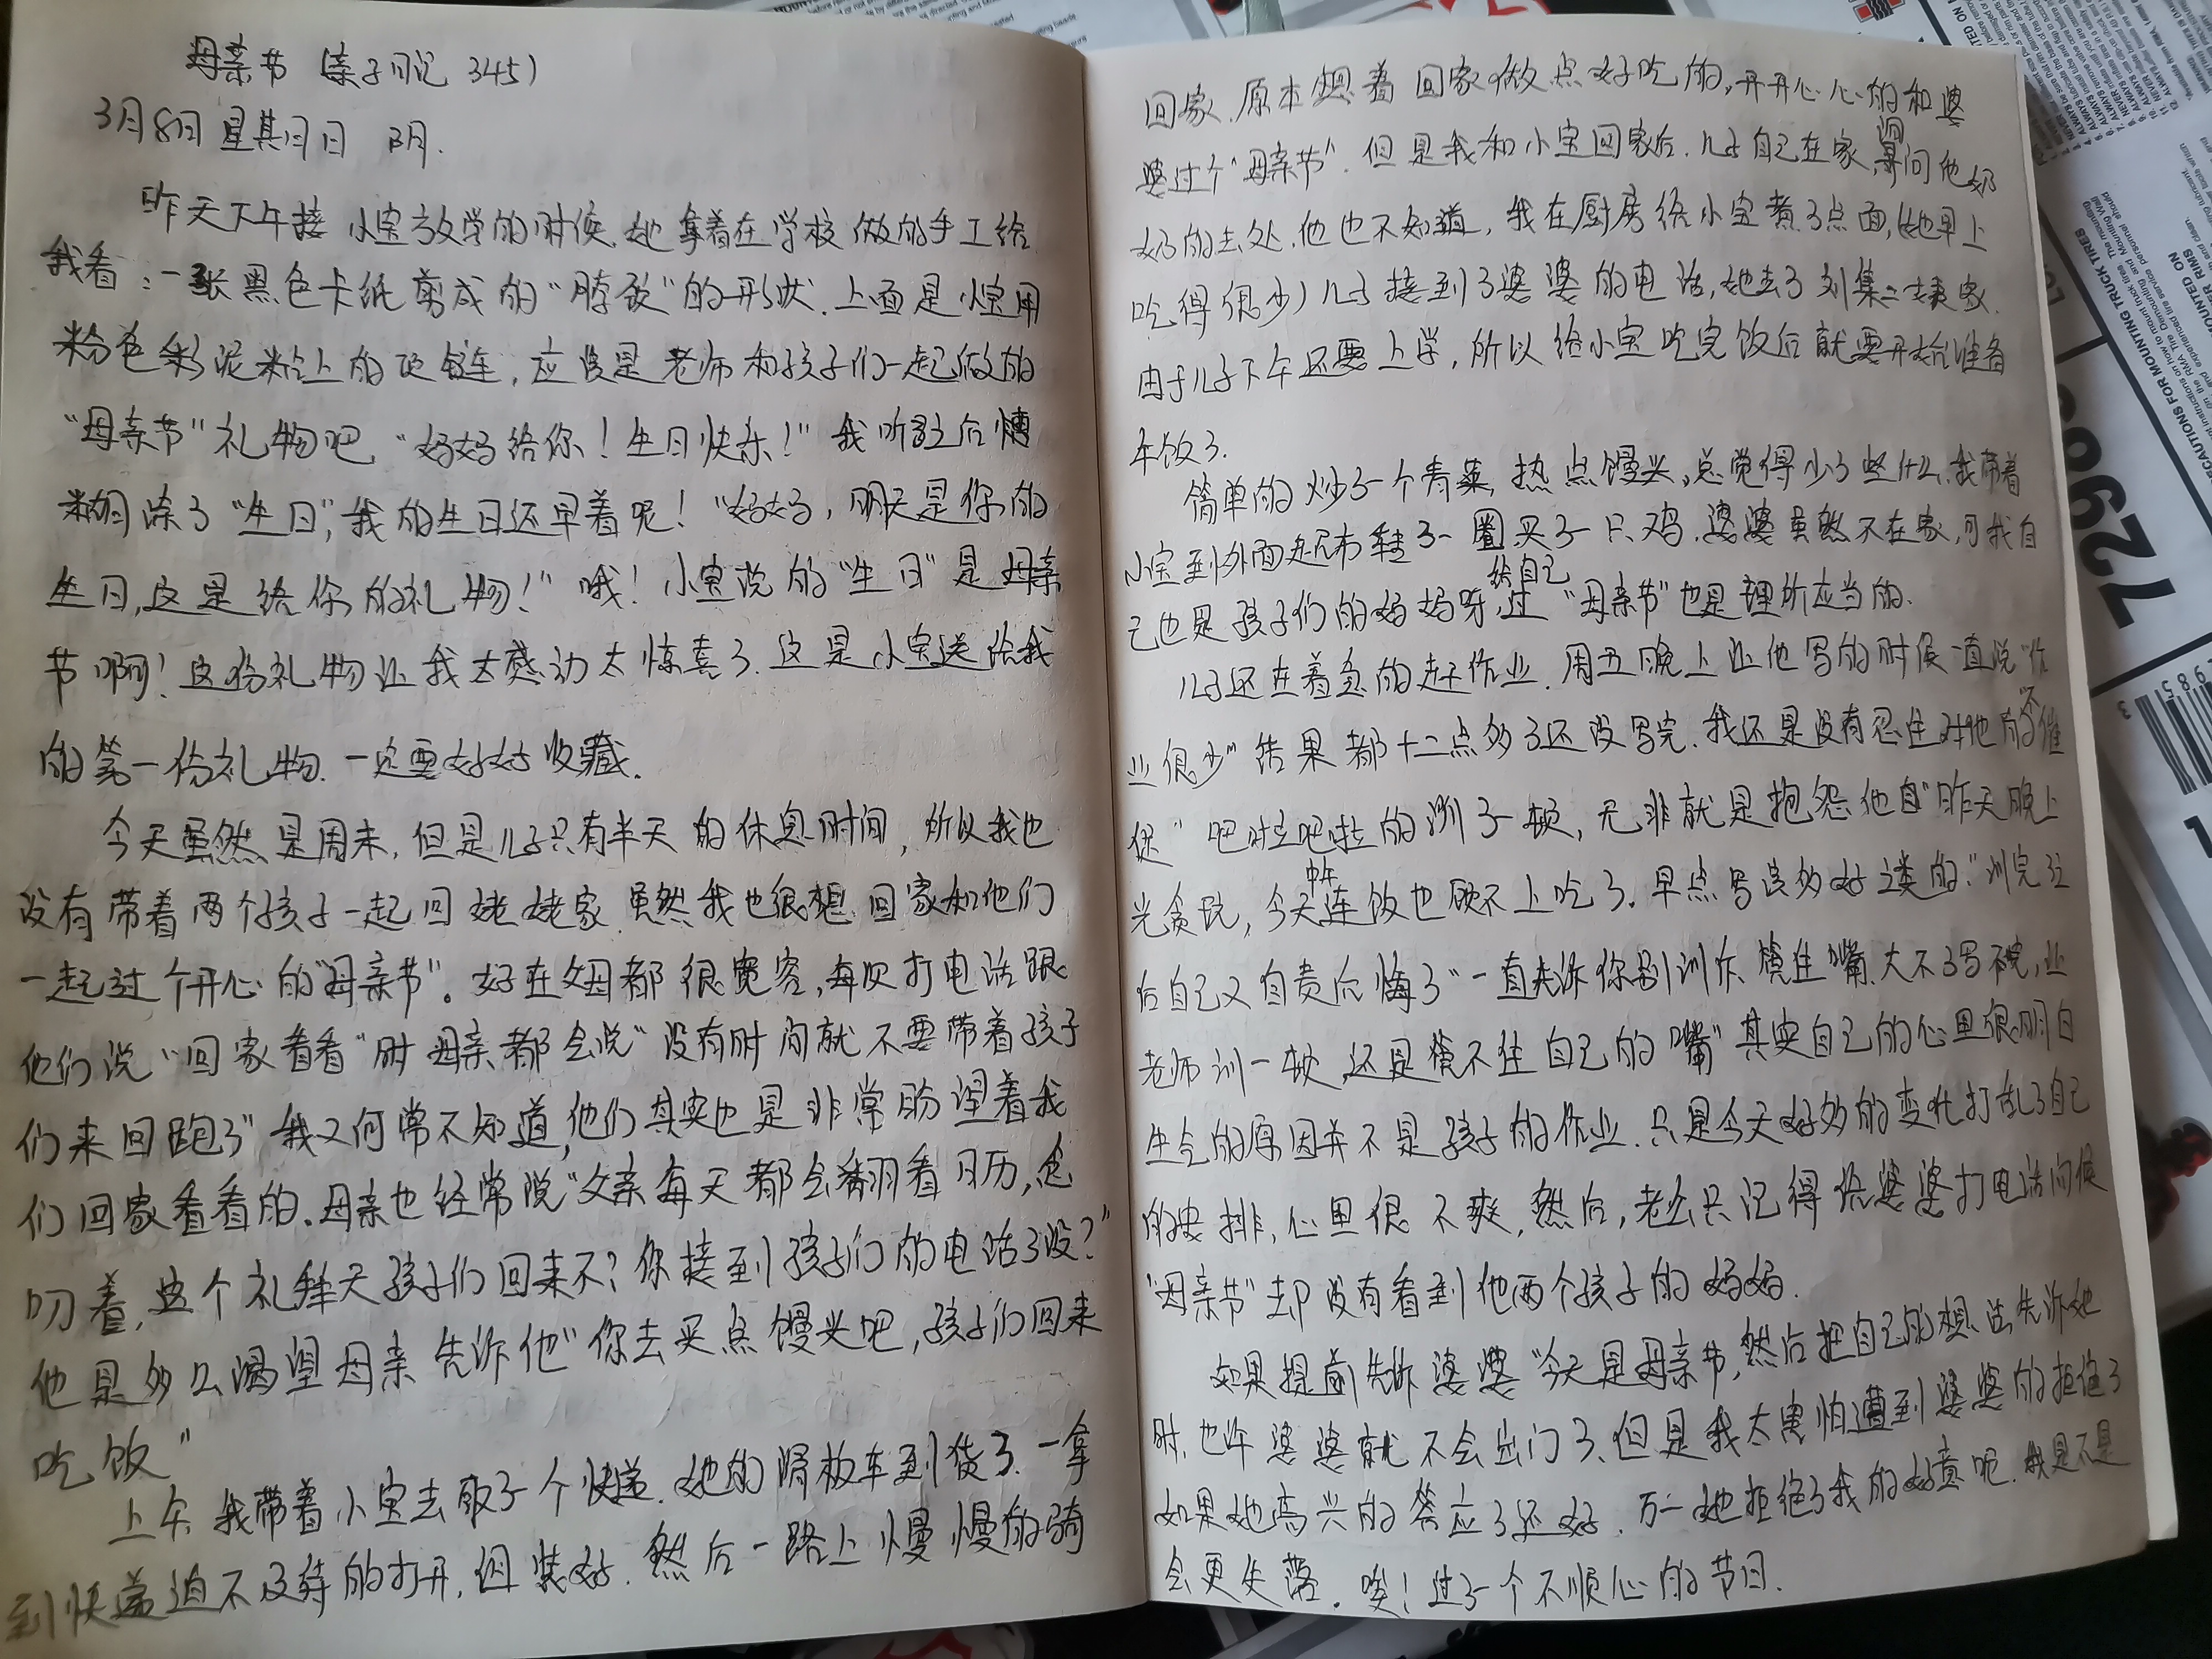 母亲节（亲子日记 345）
3月8日 星期日 阴.
昨天下午接小宝放学的时侯.她拿着在学校做的手工给
我看：一张黑色卡纸剪成的“脖颈”的形状.上面是小宝用
粉色彩泥粘上的项链，应该是老师和孩子们一起做的
“母亲节”礼物吧“妈妈给你！生日快乐！”我听了之后懵
糊涂了“生日”，我的生日还早着呢！“妈妈，明天是你的
生日，这是给你的礼物！”哦！小宝说的“生日”是母亲
节啊！这份礼物让我太感动太惊喜了.这是小宝送给我
的第一份礼物.一定要好好收藏.
今天虽然是周末，但是儿子只有半天的休息时间，所以我也
没有带着两个孩子一起回姥姥家.虽然我也很想回家和他们
一起过个开心的“母亲节”。好在父母都很宽容，每次打电话跟
他们说“回家看看”时母亲都会说“没有时间就不要带着孩子
们来回跑了”我又何常不知道，他们其实也是非常盼望着我
们回家看看的.母亲也经常说“父亲每天都会翻看日历，念
叨着，这个礼拜天孩子们回来不？你接到孩子们的电话了没？”
他是多么渴望母亲告诉他“你去买点馒头吧，孩子们回来
吃饭”
上午我带着小宝去取了一个快递.她的滑板车到货了.一拿
到快递迫不及待的打开，组装好.然后一路上慢慢的骑
回家.原本想着回家做点好吃的，开开心心的和婆
婆过个“母亲节”.但是我和小宝回家后.儿子自己在家，询问他奶
奶的去处.他也不知道，我在厨房给小宝煮了点面，（她早上
吃得很少）儿子接到了婆婆的电话，她去了刘集二姨家.
由于儿子下午还要上学，所以给小宝吃完饭后就要开始准备
午饭了.
简单的炒了一个青菜，热点馒头，总觉得少了些什么.我带着
小宝到外面超市转了一圈买了一只鸡.婆婆虽然不在家，可我自
己也是孩子们的妈妈呀，给自己过“母亲节”也是理所应当的.
儿子还在着急的赶作业.周五晚上让他写的时侯一直说“作
业很少”结果都十二点多了还没写完.我还是没有忍住对他的“不催
促”吧啦吧啦的训了一顿，无非就是抱怨他自“昨天晚上
光贪玩，今天中午连饭也顾不上吃了.早点写该多好之类的.”训完之
后自己又自责后悔了“一直告诉你别训斥.管住嘴.大不了写不完，让
老师训一顿，还是管不住自己的嘴”其实自己的心里很明白
生气的原因并不是孩子的作业.只是今天好多的变化打乱了自己
的安排，心里很不爽，然后，老公只记得给婆婆打电话问侯
“母亲节”却没有看到他两个孩子的妈妈.
如果提前告诉婆婆“今天是母亲节，然后把自己的想法告诉她
时.也许婆婆就不会出门了.但是我太害怕遭到婆婆的拒绝了
如果她高兴的答应了还好.万一她拒绝了我的好意呢.我是不是
会更失落.唉！过了一个不顺心的节日.
72985
1